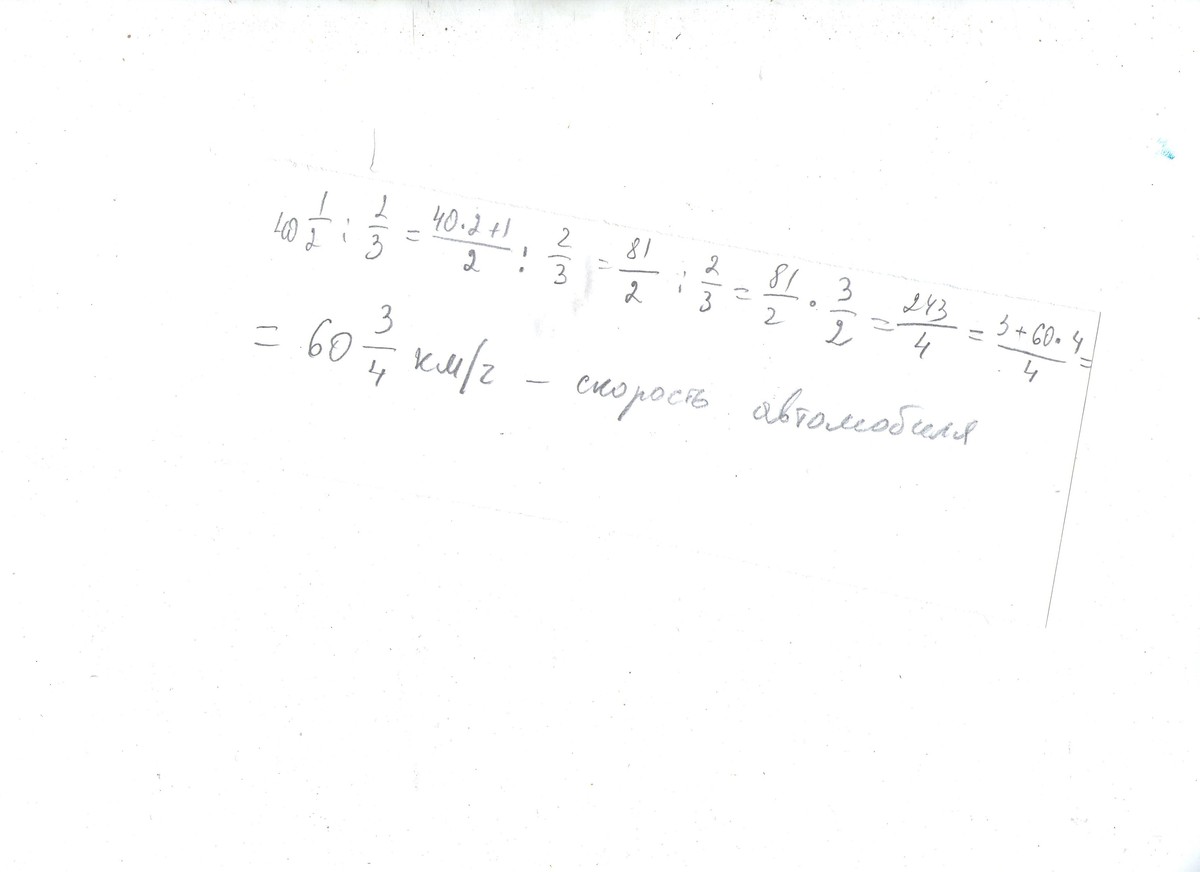 40 1/2 : 2/3 = (40·2+1)/2 : 2/3 = 81/2 : 2/3 = 81/2 · 3/2 = 243/4 = (3+60·4)/4 =
= 60 3/4 км/ч – скорость автомобиля